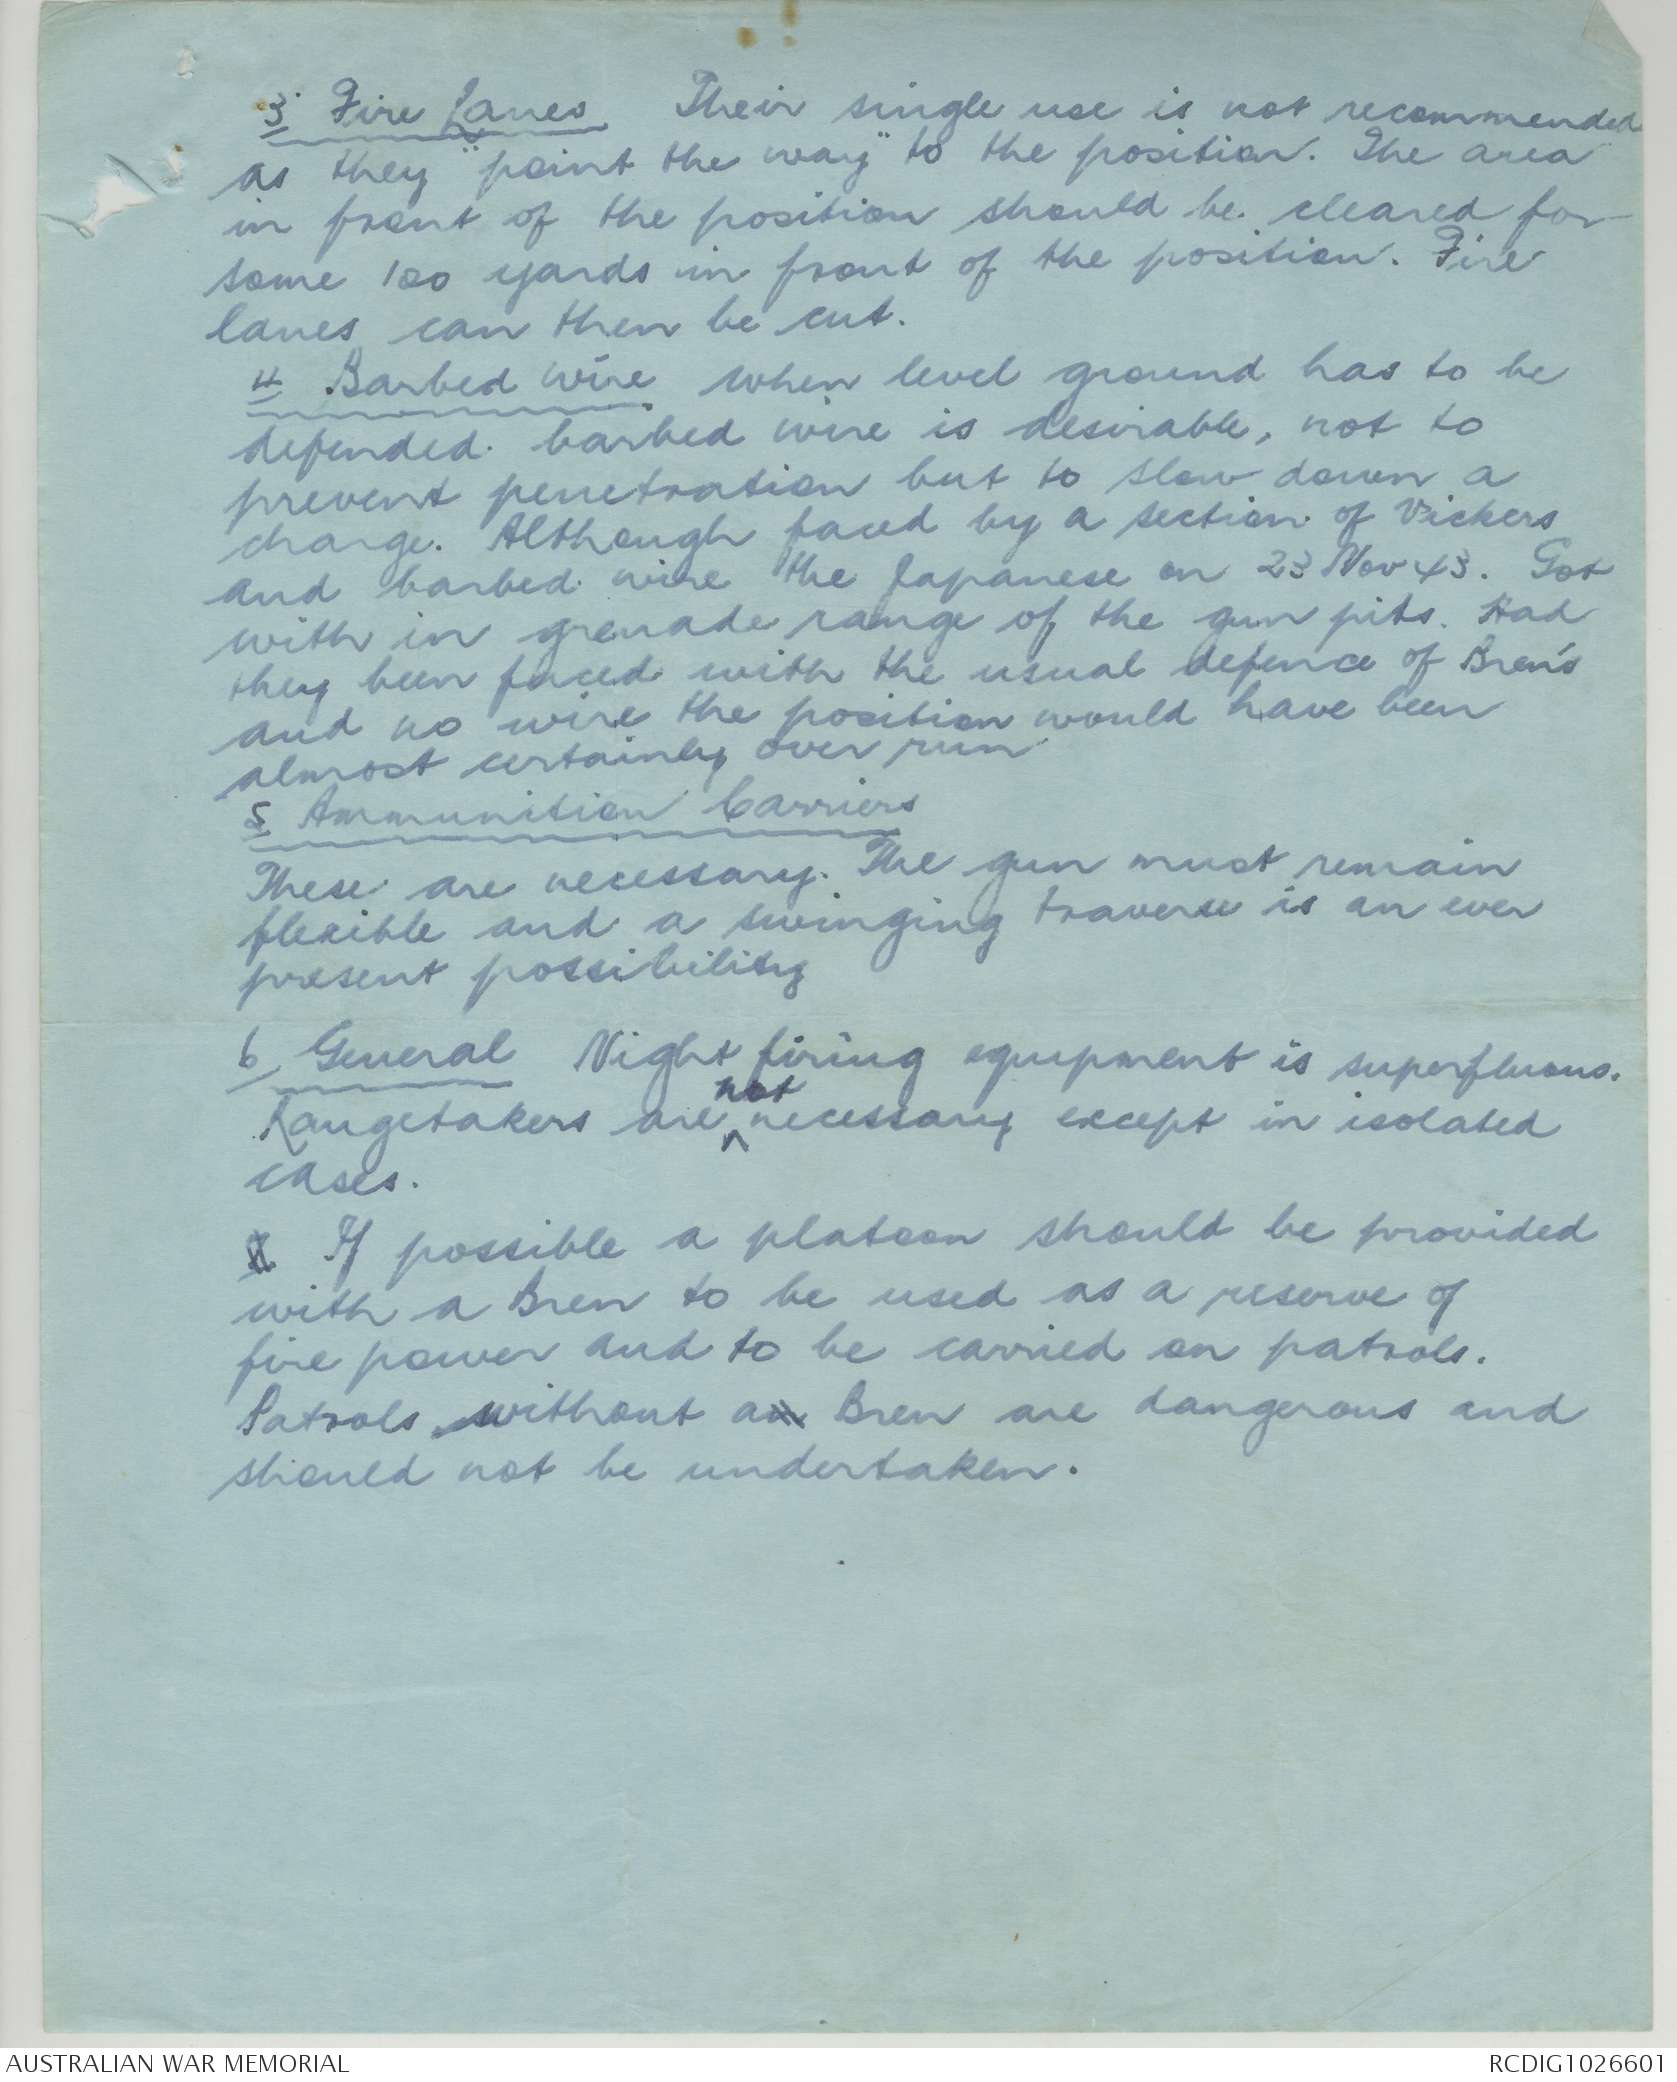 3 Fire Lanes Their single use is not recommended
as they "point the way" to the position. The area
in front of the position should be cleared for
some 100 yards in front of the position. Fire
lanes can then be cut.
4 Barbed wire when level ground has to be
defended. barbed wire is desirable, not to
prevent penetration but to slow down a
charge. Although faced by a section of Vickers
and barbed wire the Japanese on 23 Nov 43. Got
with in grenade range of the gun pits. Had
they been faced with the usual defence of Bren's
and no wire the position would have been
almost certainly over run
5 Ammunition Carriers
These are necessary. The gun must remain
flexible and a swinging traverse is an ever
present possibility
6 General Night firing equipment is superfluous.
not
Rangetakers are ^ necessary except in isolated
cases.
If possible a platoon should be provided
with a Bren to be used as a reserve of
fire power and to be carried on patrols.
Patrols without a Bren are dangerous and
should not be undertaken.
AUSTRALIAN WAR MEMORIAL
RCDIG1026601